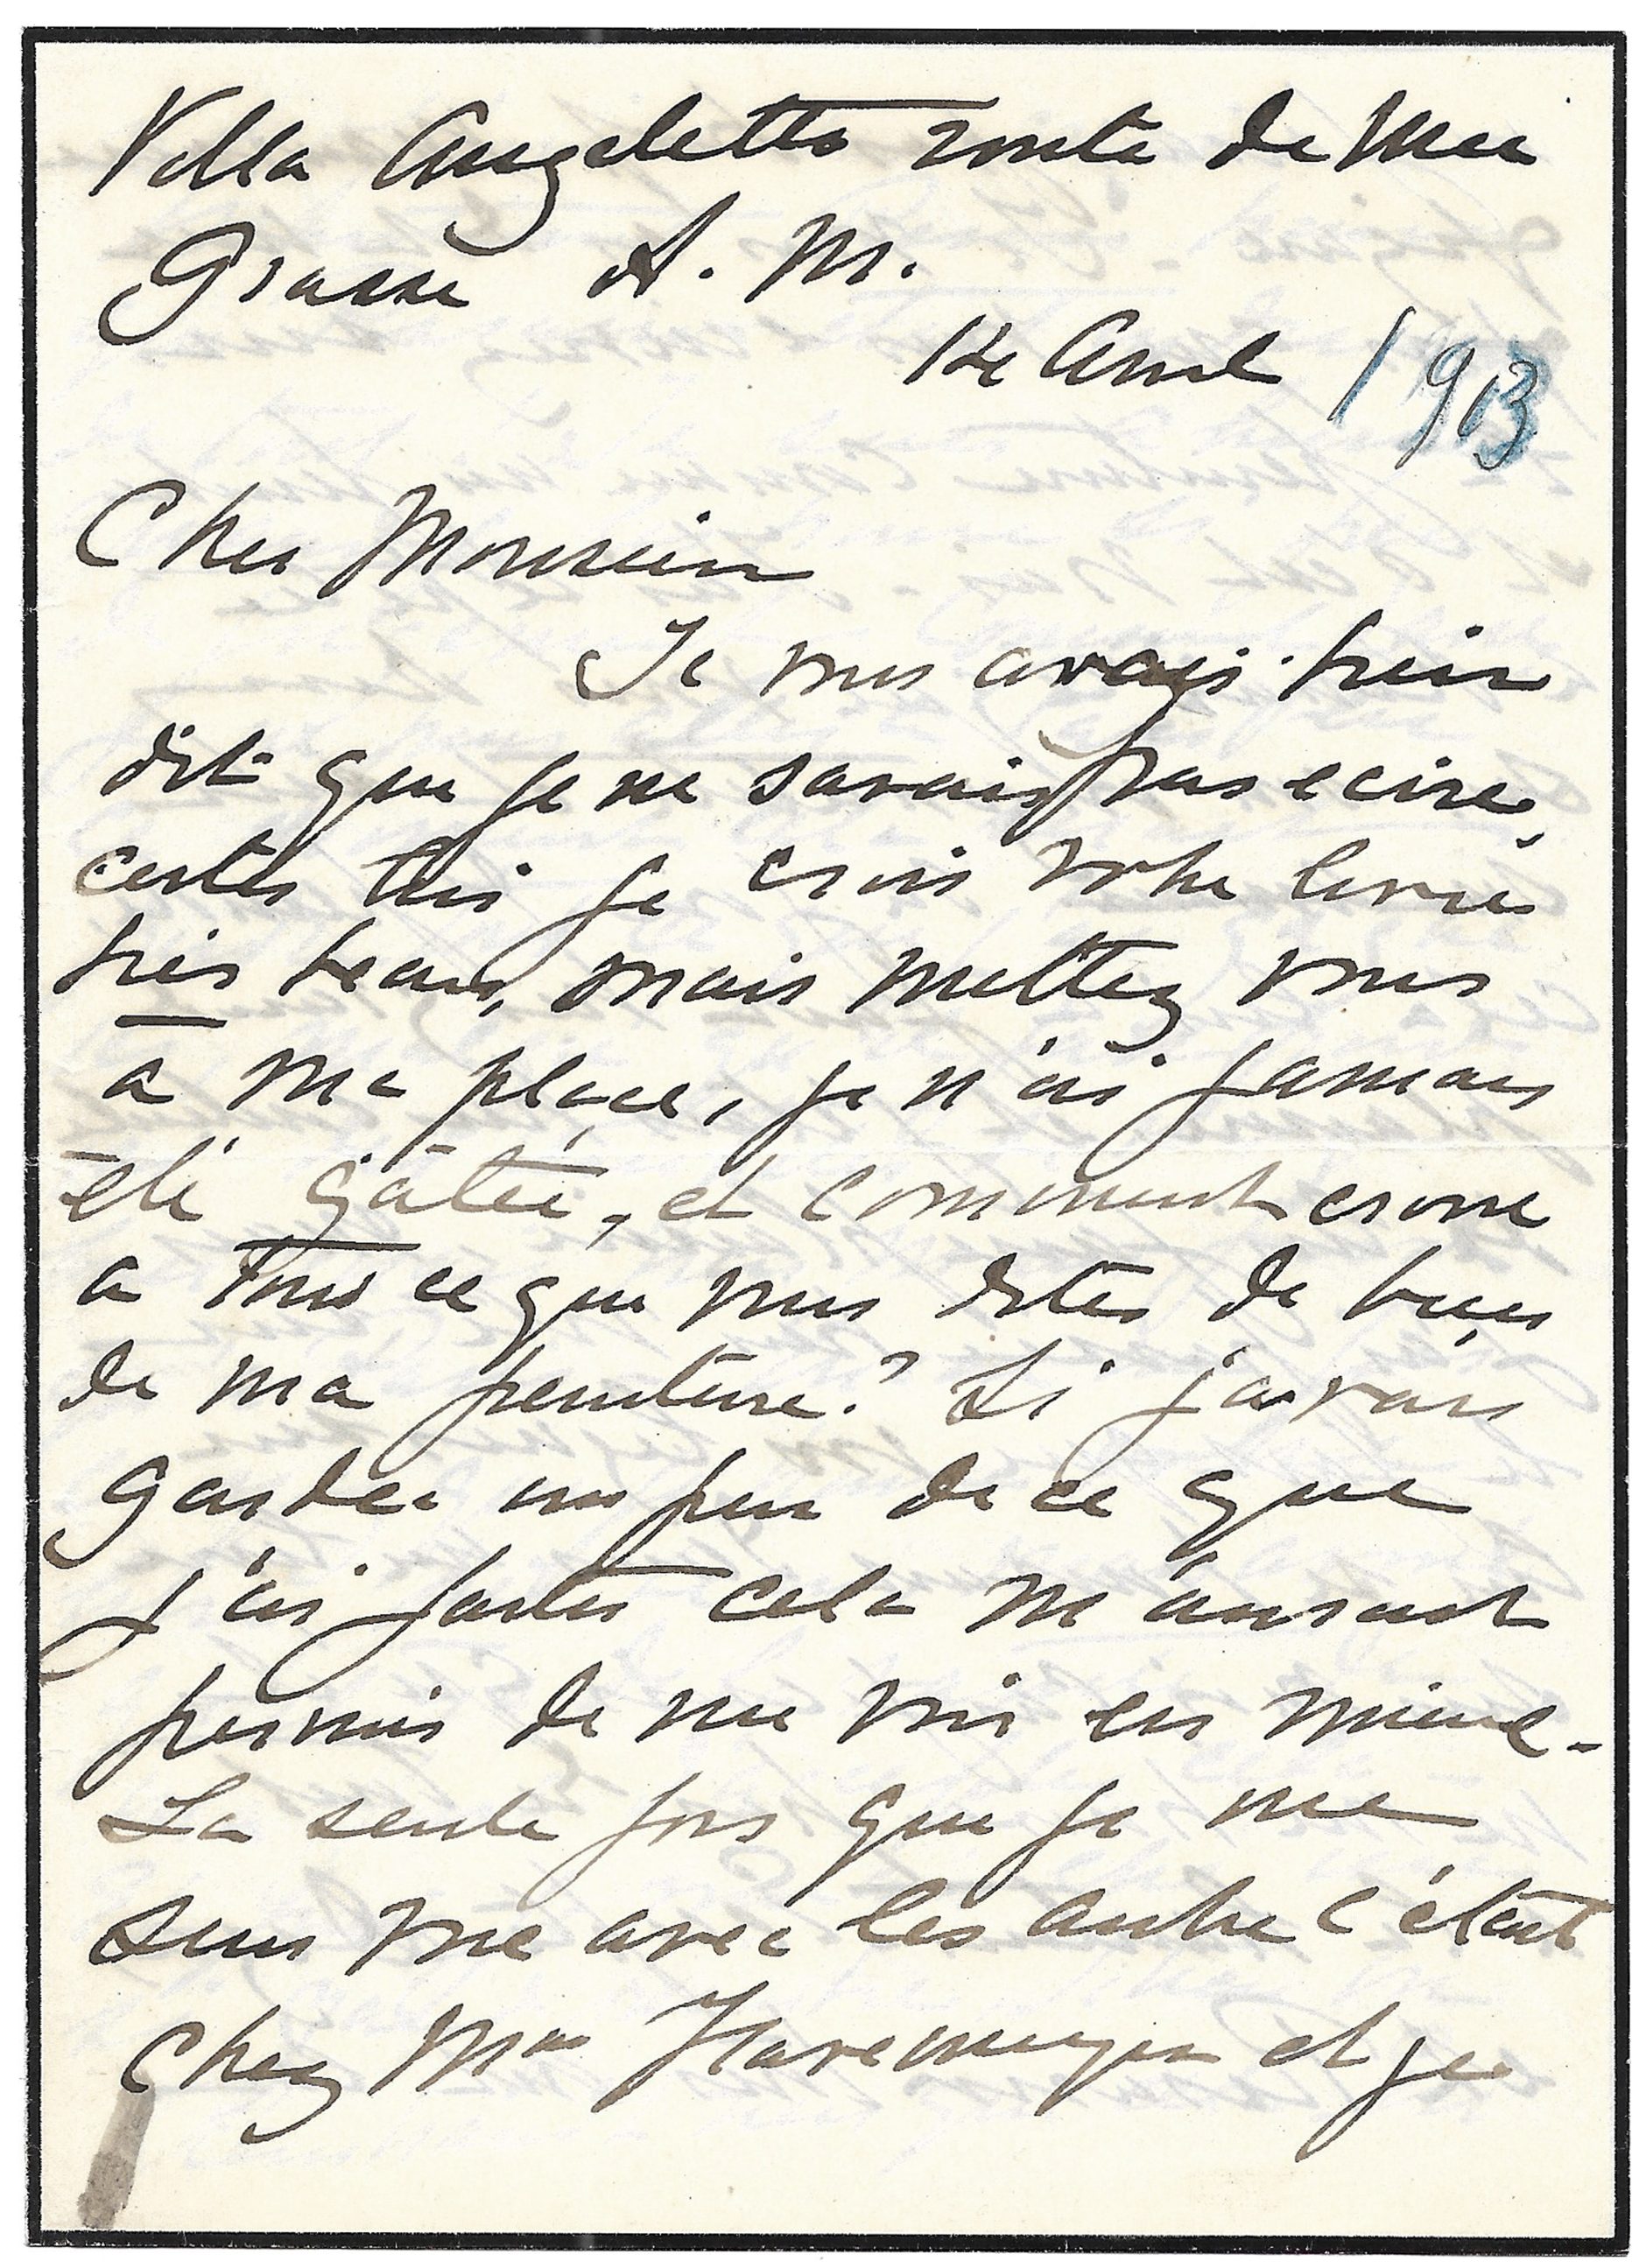 Villa Angeletto route de Nice
Grasse A. M.
Avril 1913
Cher Monsieur
Je vous avais bien
dit que je ne savais pas ecire,
certes oui je crois votre livre
très beau, mais mettez vous
à ma place, je n'ai jamais
été gâtée, et comment croire
a tout ce que vous dites de bien
de ma peinture? Si j'avais
garder un peu de ce que
j'ai faites cela m'aurait
permis de me voir en mieux -
La seule fois que je me
suis vue avec les autre c'était
Chez Mme Havemeyer et je